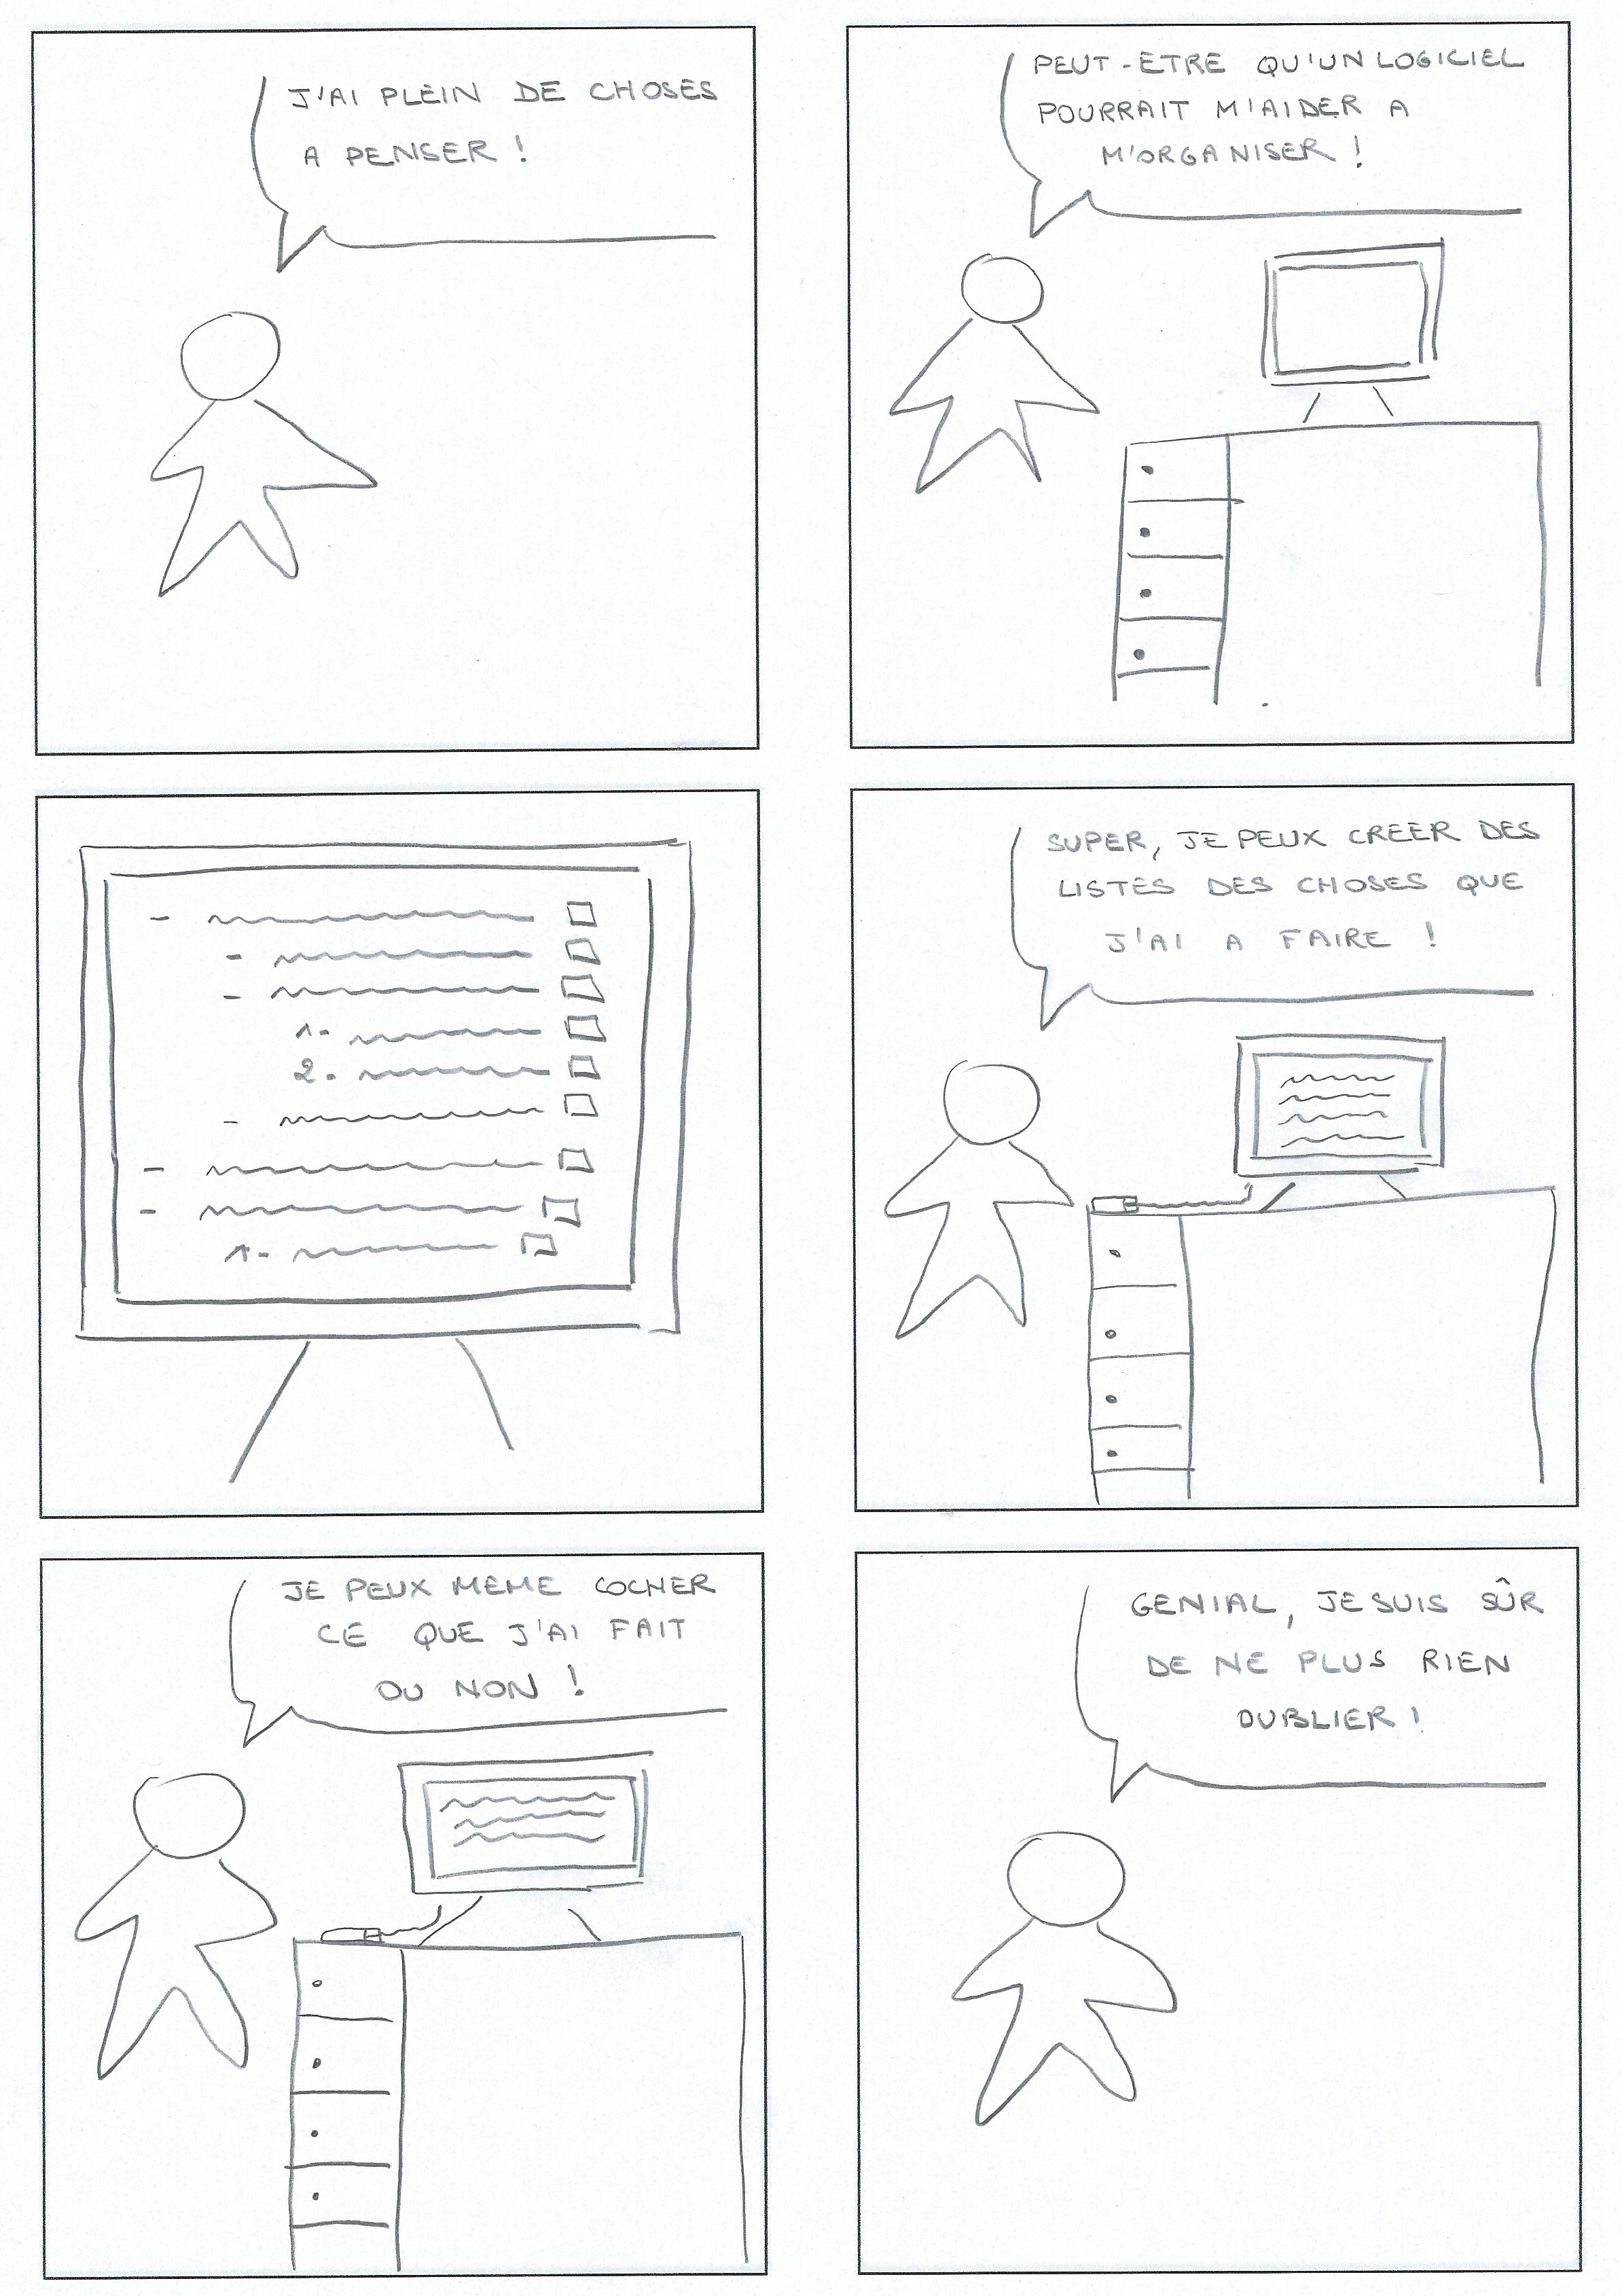 J'AI PLEIN DE CHOSES
A PENSER !
PEUT-ETRE QU'UN LOGICIEL
POURRAIT M'AIDER A
M'ORGANISER !
-
-
-
1-
2-
-
-
-
1-
SUPER, JE PEUX CREER DES
LISTES DES CHOSES QUE
J'AI A FAIRE !
JE PEUX MEME COCHER
CE QUE J'AI FAIT
OU NON !
GENIAL, JE SUIS SÛR
DE NE PLUS RIEN
OUBLIER !